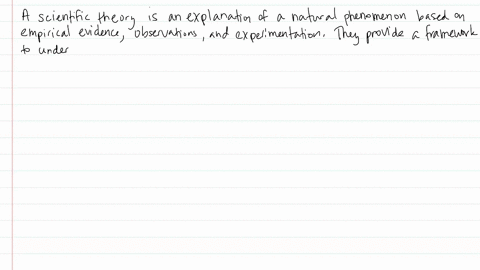 A scientific theory is an explanation of a natural phenomenon based on
empirical evidence, observations, and experimentation. They provide a framework
to under